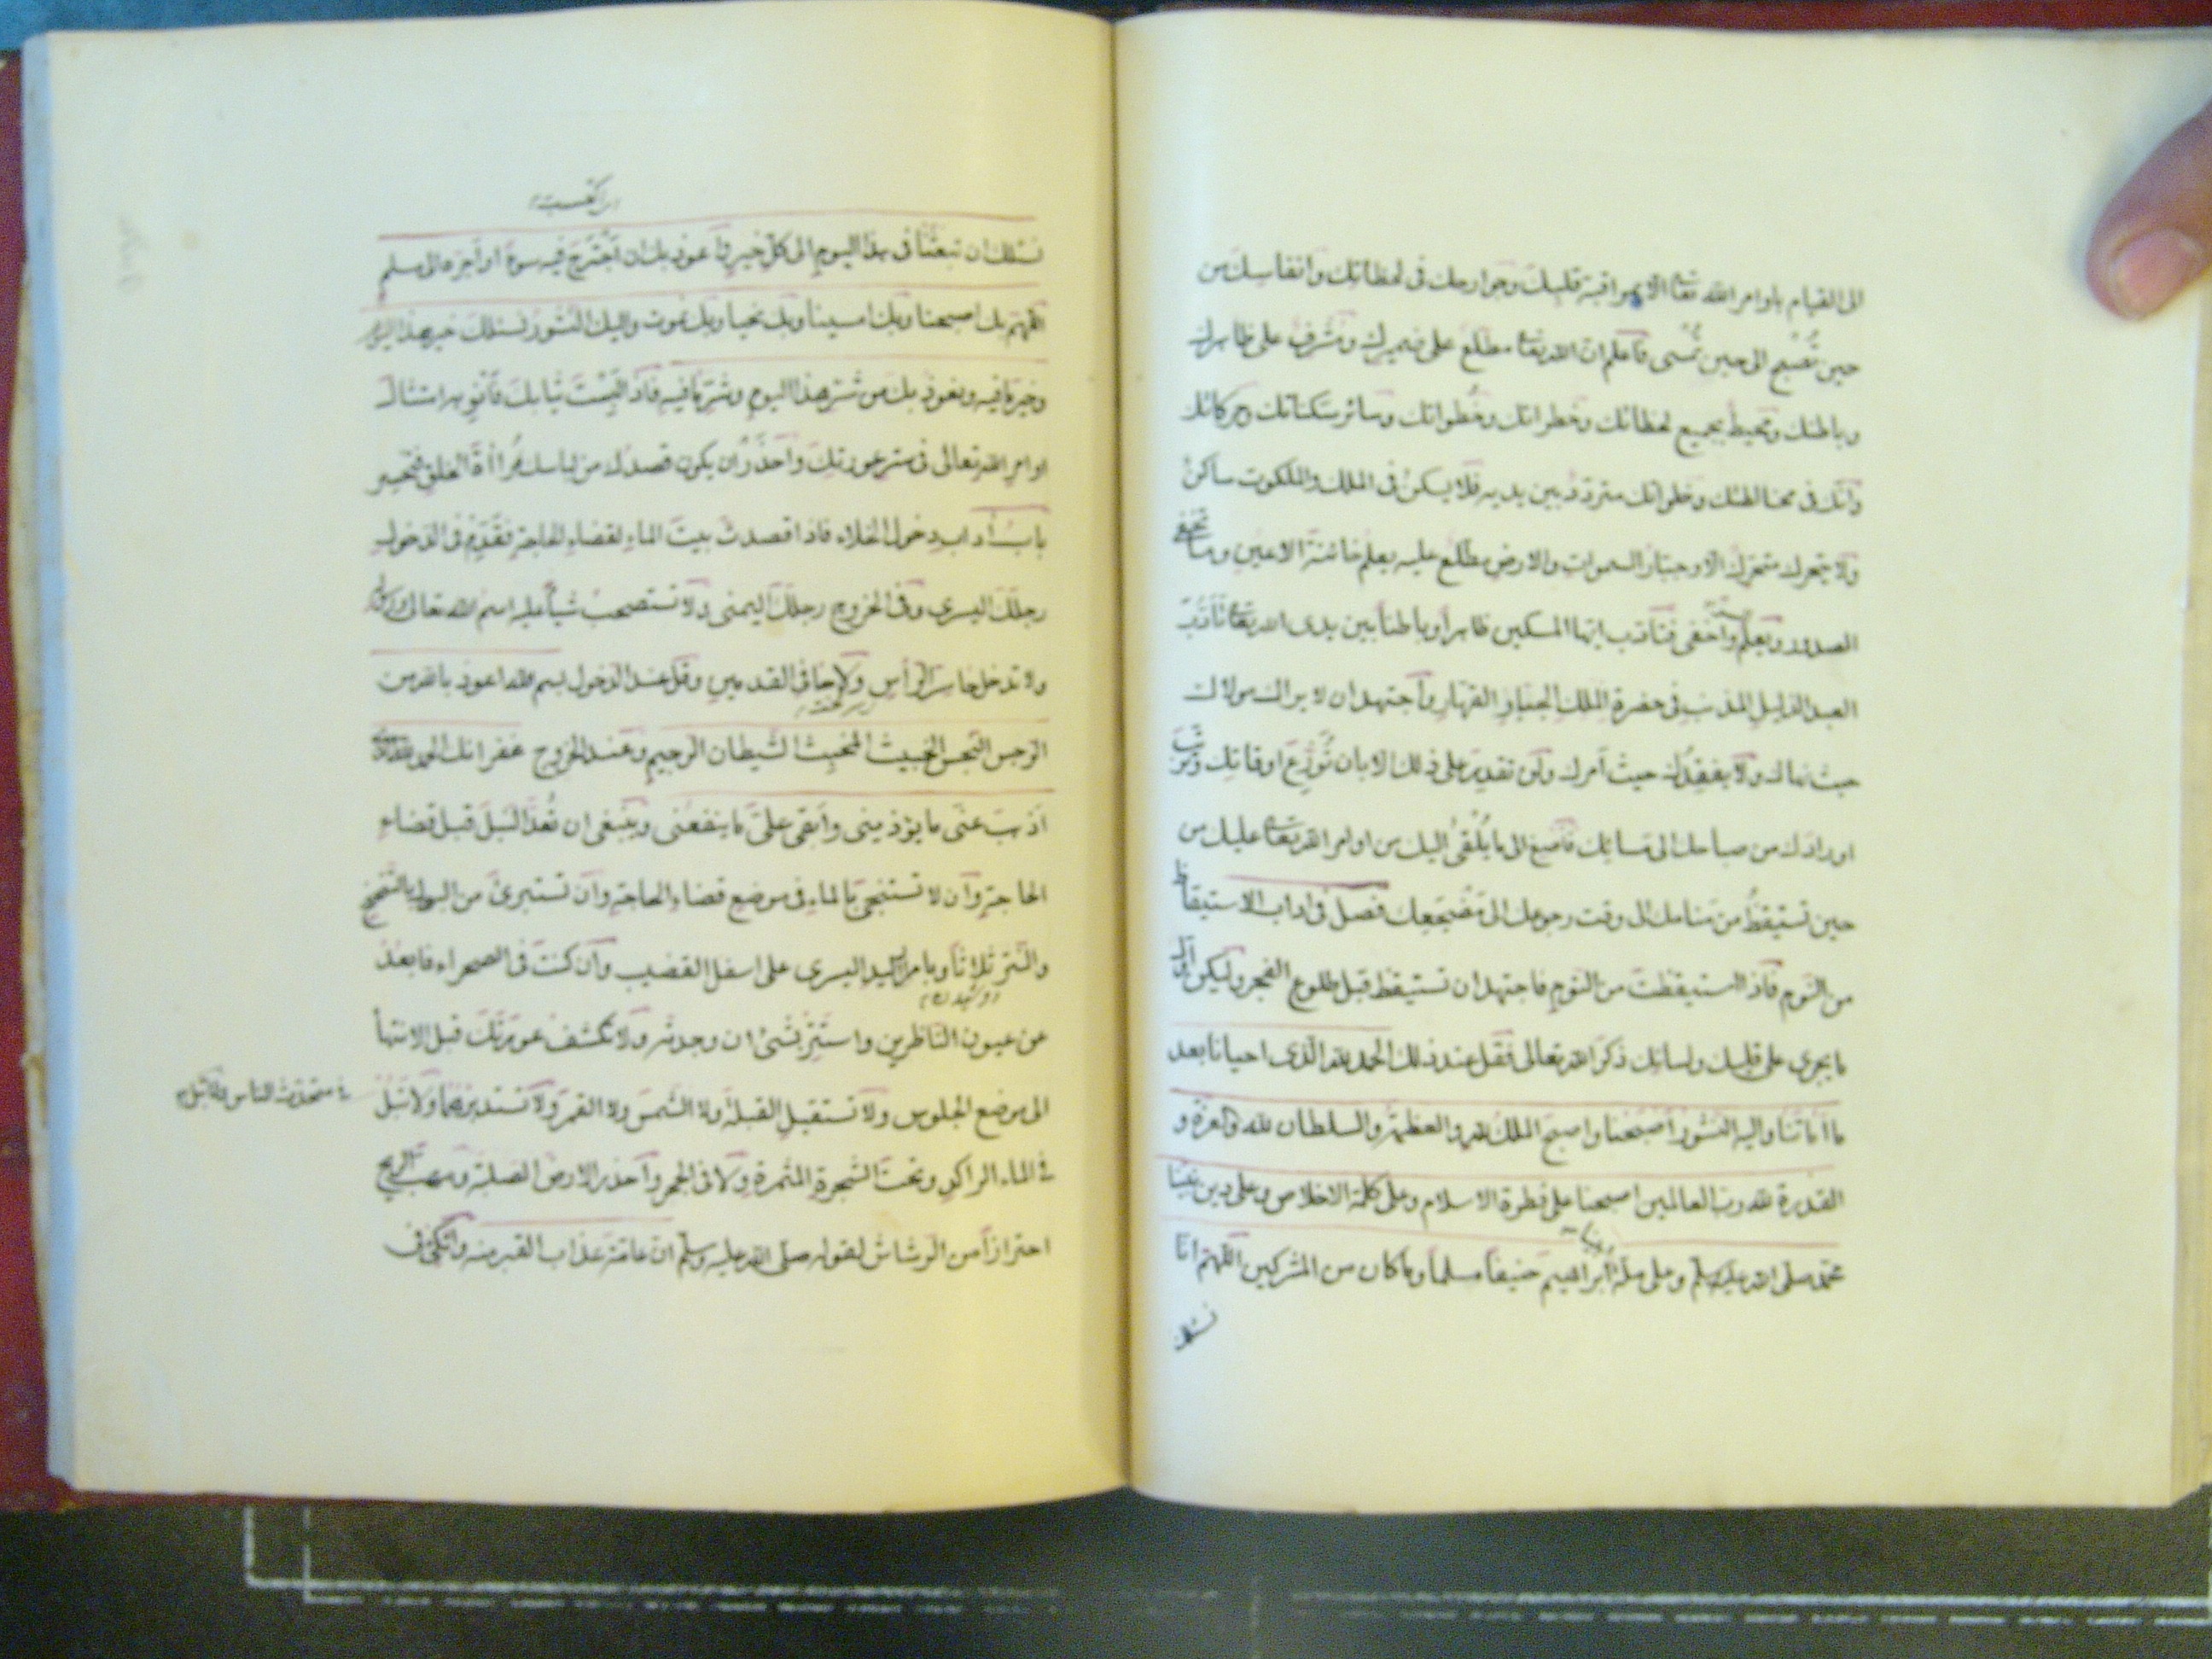 الى القيام باوامر الله تعا الا بمراقبة قلبك وجوارحك فى لحظاتك وانفاسك من
حين تُصْبح الى حين تُمْسى فاعلم ان الله تعا مطلع على ضميرك ومشرف على ظاهرك
وباطنك ومحيط بجميع لحظاتك وخطراتك وخطواتك وسائر سكناتك وحركاتك
وانك فى مخالطتك وخلواتك متردد بين يديه فلا يسكن فى الملك والملكوت ساكن
ولا يتحرك متحرك الا وجبّار السموات والارض مطلع عليه يعلم خائنة الاعين وما تخفى
الصدور ويعلم واخفى فتادب ايها المسكين ظاهرا وباطنا بين يدى الله تعا تأدّب
العبد الذليل المذنب فى حضرة الملك الجبار القهار واجتهد ان لا يراك مولاك
حيث نهاك ولا يفقدك حيث امرك ولن تقدر على ذلك الا بان تُوزّع اوقاتك وترتب
اورادك من صباحك الى مسائك فاصغ الى ما يُلْقى اليك من اوامر الله تعا عليك من
حين تستيقظ من منامك الى وقت رجوعك الى مضجعك فصل فى اداب الاستيقاظ
من النوم فاذا استيقظت من النوم فاجتهد ان تستيقظ قبل طلوع الفجر وليكن اول
ما يجرى على قلبك ولسانك ذكر الله تعالى فقل عند ذلك الحمد لله الذى احيانا بعد
ما اماتنا واليه النشور اصبحنا واصبح الملك لله والعظمة والسلطان لله والعزة و
القدرة لله رب العالمين اصبحنا على فطرة الاسلام وعلى كلمة الاخلاص وعلى دين نبينا
محمد صلى الله عليه وسلم وعلى ملة ابراهيم حنيفا مسلما وما كان من المشركين اللهم انا
نسئلك
نسئلك ان تبعثنا فى هذا اليوم الى كل خير واعوذ بك ان اجترح فيه سوءً او اجره الى مسلم
اللهم بك اصبحنا وبك امسينا وبك نحيا وبك نموت واليك النشور نسئلك خير هذا اليوم
وخير ما فيه ونعوذ بك من شر هذا اليوم وشر ما فيه فاذا لبست ثيابك فانو به امتثال
اوامر الله تعالى فى ستر عورتك واحذر ان يكون قصدك من لباسك مُراأة الخلق فتخسر
باب اداب دخول الخلاء فاذا قصدت بيت الماء لقضاء الحاجة فقدم فى الدخول
رجلك اليسرى وفى الخروج رجلك اليمنى ولا تستصحب شيأ عليه اسم الله تعالى ورسوله
ولا تدخل حاسر الرأس ولا حافى القدمين وقل عند الدخول بسم الله اعوذ بالله من
الرجس النجس الخبيث المخبث الشيطان الرجيم وعند الخروج غفرانك الحمد لله الذى
اذهب عنى ما يؤذينى وابقى علىّ ما ينفعنى وينبغى ان تُعدّ النبل قبل قضاء
الحاجة وان لا تستنجى بالماء فى موضع قضاء الحاجة وان تستبرئ من البول بالتنحنح
والنتر ثلاثا وبامرار اليد اليسرى على اسفل القضيب وان كنت فى الصحراء فابعد
عن عيون الناظرين واستتر بشئ ان وجدته ولا تكشف عورتك قبل الانتهأ
الى موضع الجلوس ولا تستقبل القبلة ولا الشمس ولا القمر ولا تستدبرهما ولا تبل
فى متحدث الناس ولا تبل
فى الماء الراكد وتحت الشجرة المثمرة ولا فى الجحر واحذر الارض الصلبة ومهب الريح
احترازا من الرشاش لقوله صلى الله عليه وسلم ان عامة عذاب القبر منه واتكئ فى